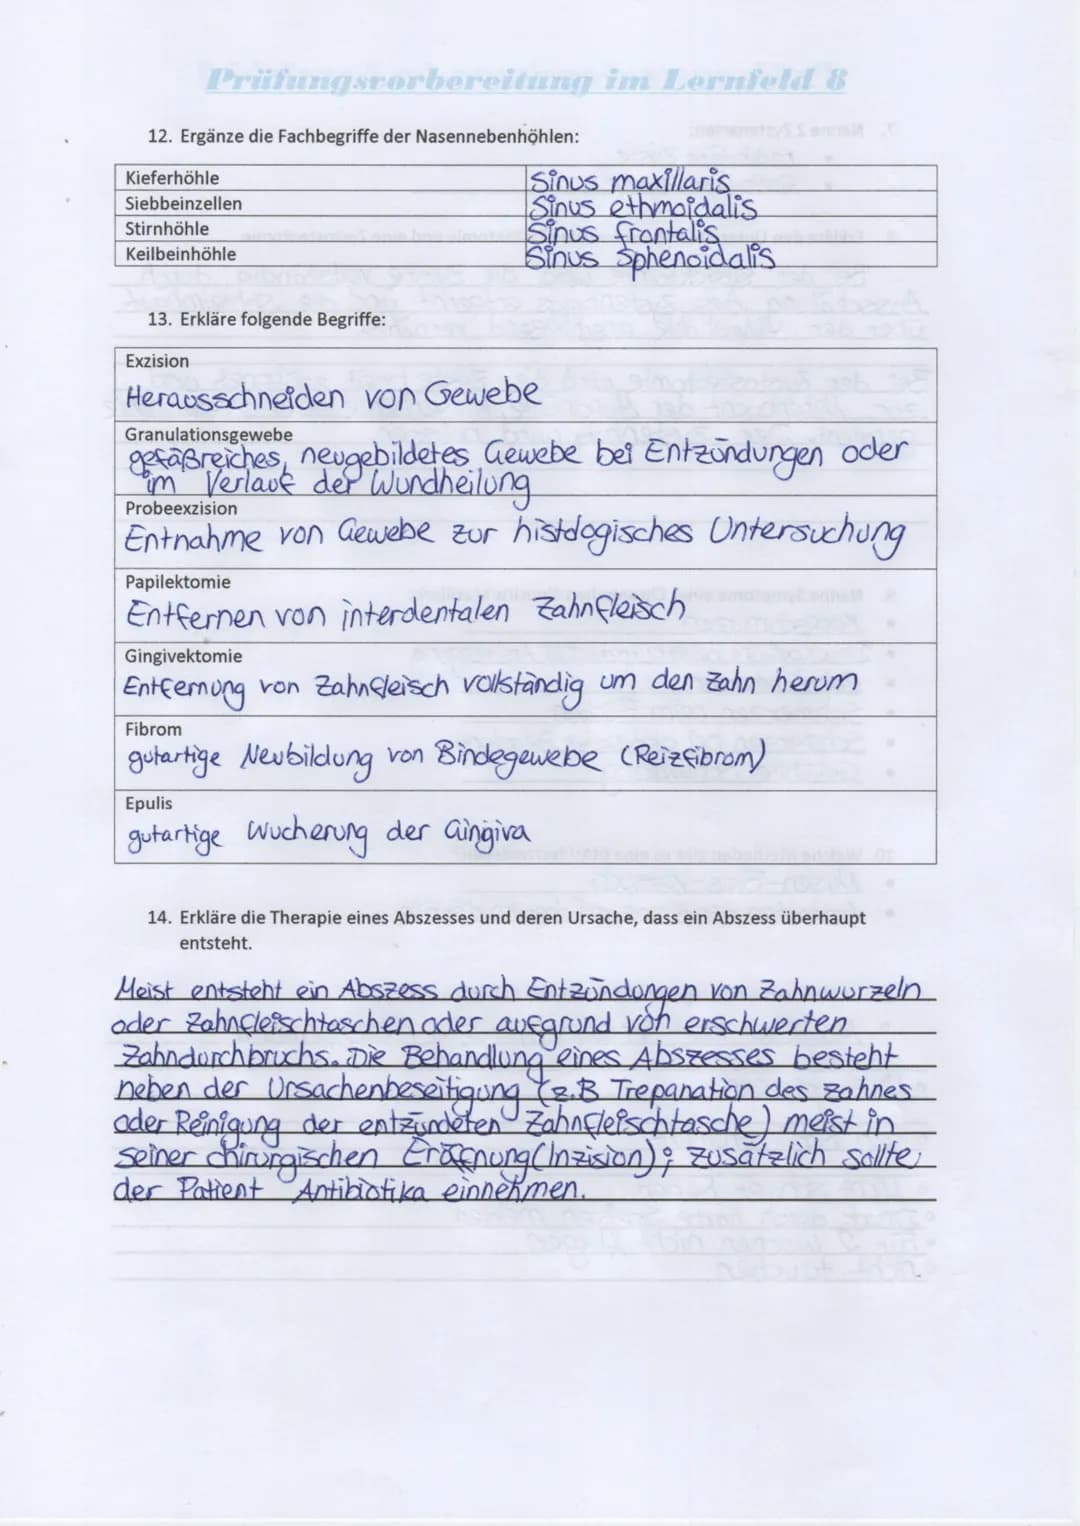 Prüfungsvorbereitung im Lernfeld 8
12. Ergänze die Fachbegriffe der Nasennebenhöhlen:
Kieferhöhle Sinus maxillaris
Siebbeinzellen Sinus ethmoidalis
Stirnhöhle Sinus frontalis
Keilbeinhöhle Sinus sphenoidalis
13. Erkläre folgende Begriffe:
Exzision
Herausschneiden von Gewebe
Granulationsgewebe
gefäßreiches, neugebildetes Gewebe bei Entzündungen oder
im Verlauf der Wundheilung
Probeexzision
Entnahme von Gewebe zur histologisches Untersuchung
Papilektomie
Entfernen von interdentalen Zahnfleisch
Gingivektomie
Entfernung von Zahnfleisch vollständig um den Zahn herum
Fibrom
gutartige Neubildung von Bindegewebe (Reizfibrom)
Epulis
gutartige Wucherung der Gingiva
14. Erkläre die Therapie eines Abszesses und deren Ursache, dass ein Abszess überhaupt
entsteht.
Meist entsteht ein Abszess durch Entzündungen von Zahnwurzeln
oder Zahnfleischtaschen oder aufgrund von erschwerten
Zahndurchbruchs. Die Behandlung eines Abszesses besteht
neben der Ursachenbeseitigung (z.B Trepanation des Zahnes
oder Reinigung der entzündeten Zahnfleischtasche) meist in
seiner chirurgischen Eröffnung (Inzision); zusätzlich sollte
der Patient Antibiotika einnehmen.